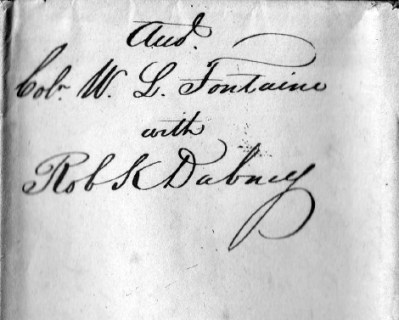 And.
Col. W. L. Fontaine
with
Rob K Dabney